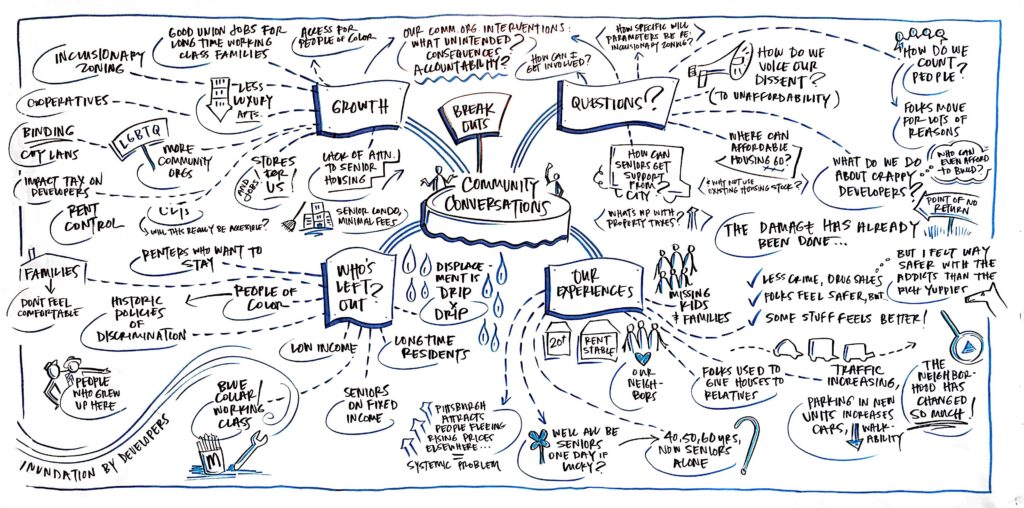 GOOD UNION JOBS FOR
LONG TIME WORKING
CLASS FAMILIES
ACCESS FOR
PEOPLE OF COLOR
INCLUSIONARY
ZONING
COOPERATIVES
LESS
LUXURY
APTS.
GROWTH
BINDING
CITY LAWS
LGBTQ
MORE
COMMUNITY
ORGS
IMPACT TAX ON
DEVELOPERS
RENT
CONTROL
CLTS
WILL THIS REALLY BE ACCESSIBLE?
STORES
FOR
US!
AND JOBS
LACK OF ATTN.
TO SENIOR
HOUSING
SENIOR CONDO,
MINIMAL FEES
OUR COMM. ORG. INTERVENTIONS:
WHAT UNINTENDED
CONSEQUENCES?
ACCOUNTABILITY?
BREAK
OUTS
COMMUNITY
CONVERSATIONS
HOW CAN I
GET INVOLVED?
HOW SPECIFIC WILL
PARAMETERS BE RE:
INCLUSIONARY ZONING?
QUESTIONS?
HOW DO WE
VOICE OUR
DISSENT?
(TO UNAFFORDABILITY)
HOW DO WE
COUNT
PEOPLE?
FOLKS MOVE
FOR LOTS OF
REASONS
HOW CAN
SENIORS GET
SUPPORT
FROM
CITY?
WHERE CAN
AFFORDABLE
HOUSING GO?
& WHY NOT USE
EXISTING HOUSING STOCK?
WHAT'S UP WITH
PROPERTY TAXES?
WHAT DO WE DO
ABOUT CRAPPY
DEVELOPERS?
WHO CAN
EVEN AFFORD
TO BUILD?
POINT OF NO
RETURN
THE DAMAGE HAS ALREADY
BEEN DONE...
WHO'S
LEFT
OUT?
RENTERS WHO WANT TO
STAY
FAMILIES
DON'T FEEL
COMFORTABLE
PEOPLE OF
COLOR
HISTORIC
POLICIES
OF
DISCRIMINATION
LOW INCOME
LONG TIME
RESIDENTS
PEOPLE
WHO GREW
UP HERE
BLUE
COLLAR/
WORKING
CLASS
M
SENIORS
ON FIXED
INCOME
INUNDATION BY DEVELOPERS
DISPLACE-
MENT IS
DRIP
X
DRIP
OUR
EXPERIENCES
MISSING
KIDS
& FAMILIES
LESS CRIME, DRUG SALES
FOLKS FEEL SAFER, BUT
SOME STUFF FEELS BETTER!
BUT I FELT WAY
SAFER WITH THE
ADDICTS THAN THE
RICH YUPPIES
RENT
STABLE
OUR
NEIGH-
BORS
FOLKS USED TO
GIVE HOUSES TO
RELATIVES
TRAFFIC
INCREASING,
PARKING IN NEW
UNITS INCREASES
CARS, WALK-
ABILITY
THE
NEIGHBOR-
HOOD HAS
CHANGED
SO MUCH!
PITTSBURGH
ATTRACTS
PEOPLE FLEEING
RISING PRICES
ELSEWHERE...
SYSTEMIC PROBLEM
WE'LL ALL BE
SENIORS
ONE DAY IF
LUCKY?
40, 50, 60 YRS,
NOW SENIORS
ALONE